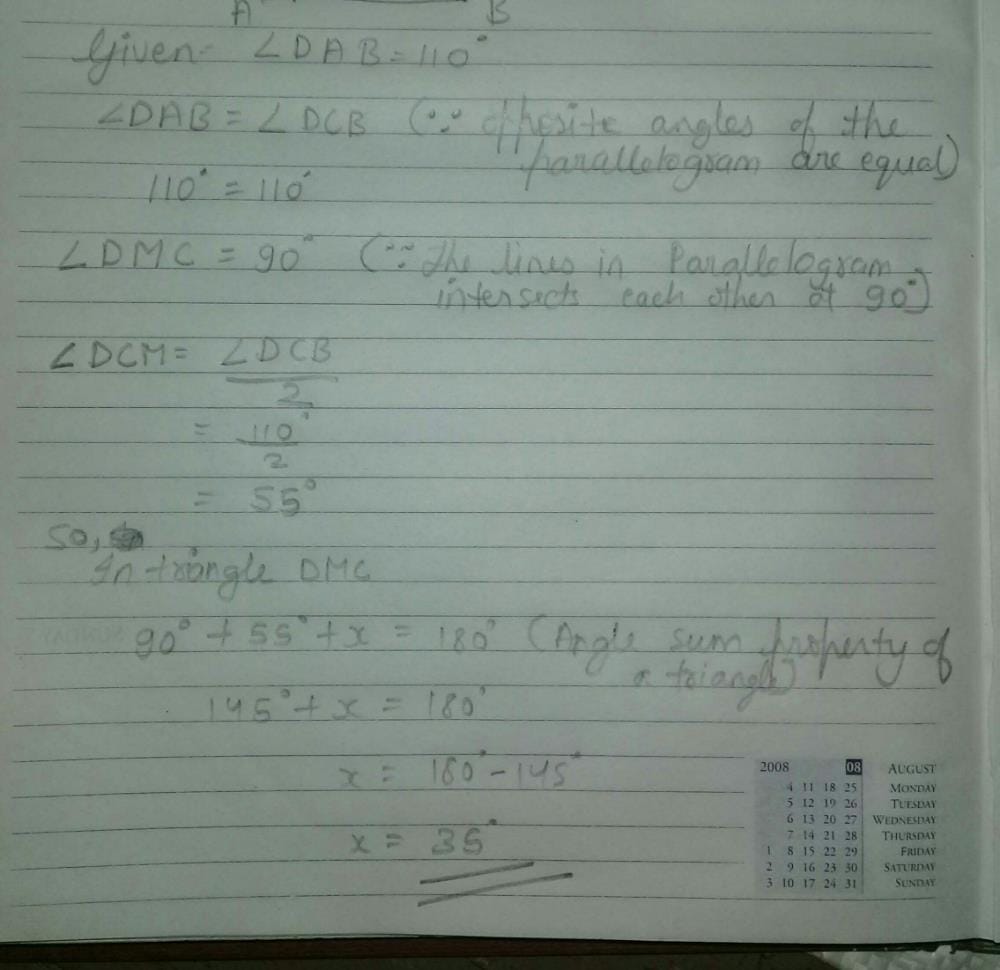 A B
Given- ∠DAB = 110°
∠DAB = ∠DCB (∵ opposite angles of the
parallelogram are equal)
110° = 110°
∠DMC = 90° (∵ the lines in Parallelogram
intersects each other at 90°)
∠DCM = ∠DCB
2
= 110°
2
= 55°
So,
In triangle DMC
90° + 55° + x = 180° (Angle sum property of
a triangle)
145° + x = 180°
x = 180° - 145°
x = 35°
2008 08 AUGUST
4 11 18 25 MONDAY
5 12 19 26 TUESDAY
6 13 20 27 WEDNESDAY
7 14 21 28 THURSDAY
1 8 15 22 29 FRIDAY
2 9 16 23 30 SATURDAY
3 10 17 24 31 SUNDAY